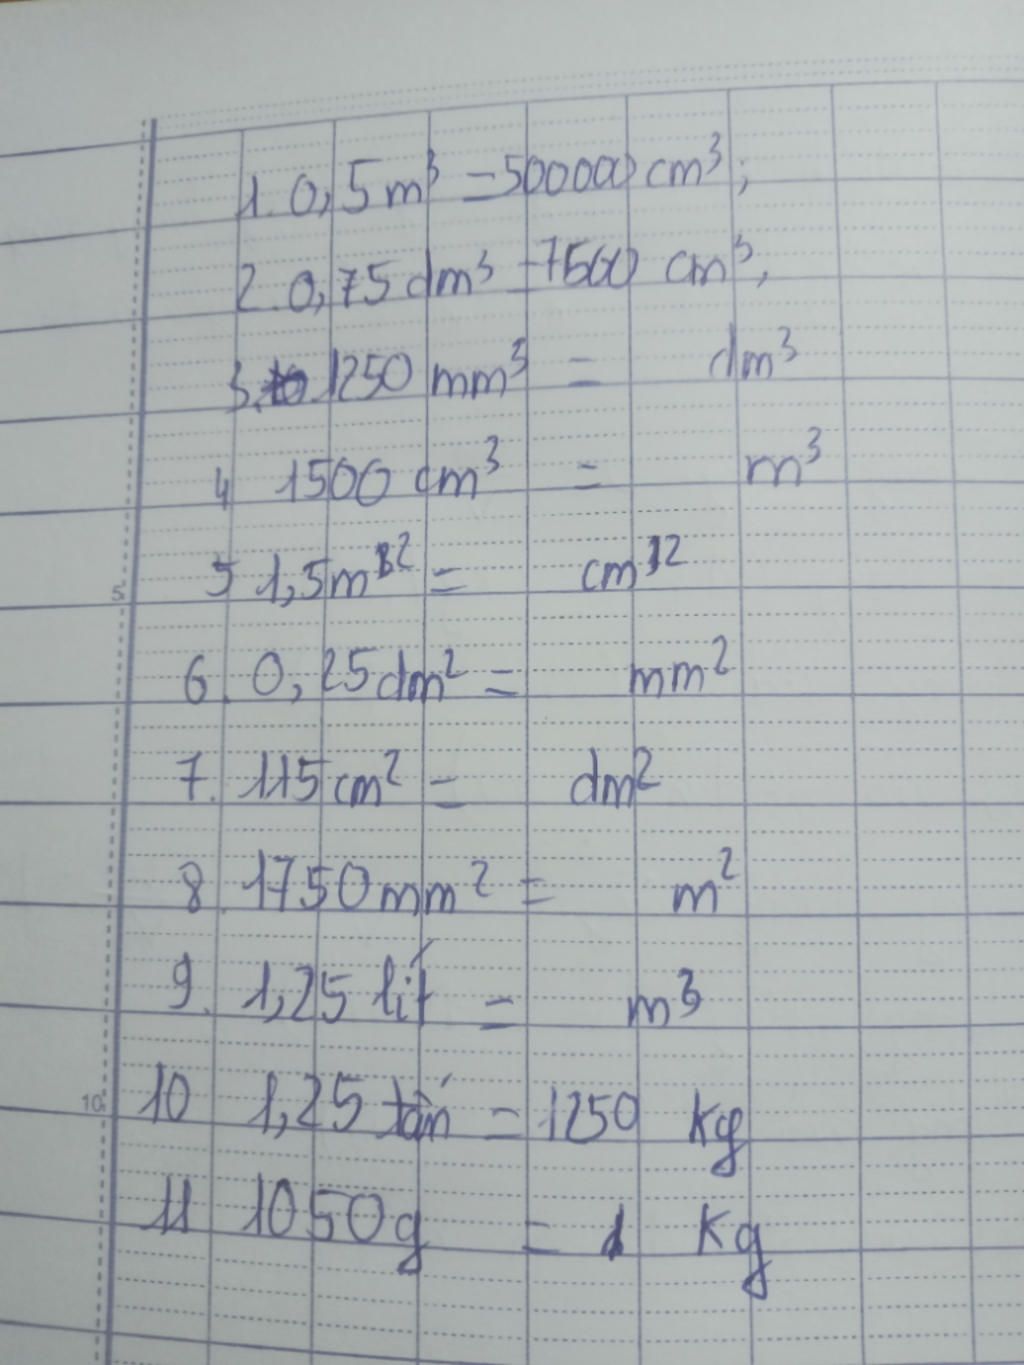 1. 0,5m³ = 500000 cm³;
2. 0,75 dm³ = 7500 cm³,
3. 1250 mm³ = dm³
4 1500 cm³ = m³
5 1,5m² = cm²
6. 0,25dm² = mm²
7. 115cm² = dm²
8. 1750mm² = m²
9. 1,25 lít = m³
10 1,25 tấn = 1250 kg
11 1050g = 1 kg
5
10